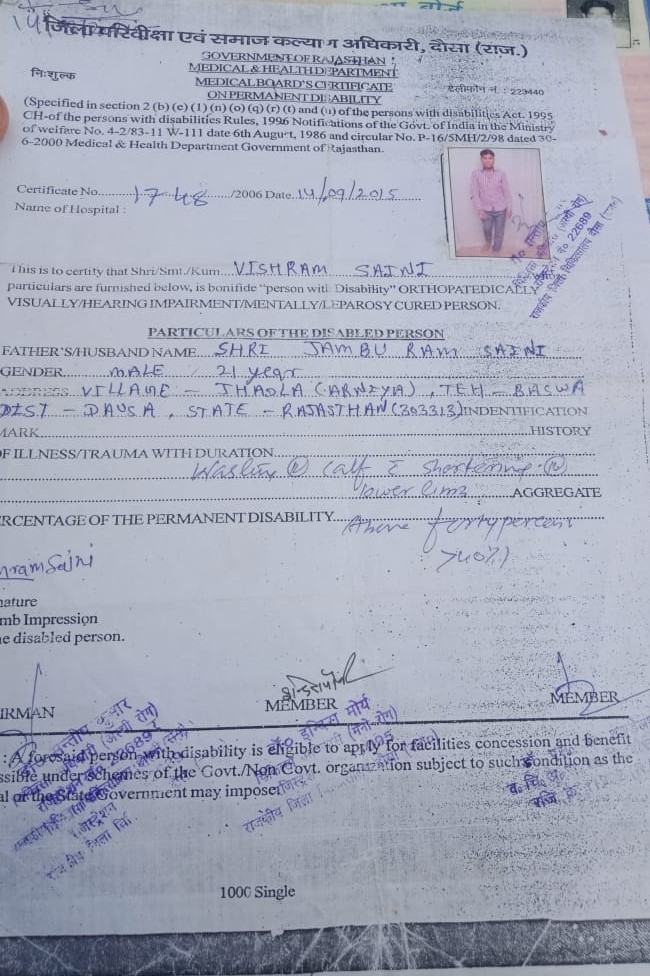 जिला परिवीक्षा एवं समाज कल्याण अधिकारी, दौसा (राज.)
GOVERNMENT OF RAJASTHAN
MEDICAL & HEALTH DEPARTMENT
निःशुल्क
MEDICAL BOARD'S CERTIFICATE
टेलीफोन नं. : 223440
ON PERMANENT DISABILITY
(Specified in section 2 (b) (e) (1) (n) (o) (q) (r) (t) and (u) of the persons with disabilities Act. 1995
CH-of the persons with disabilities Rules, 1996 Notifications of the Govt. of India in the Ministry
of welfare No. 4-2/83-11 W-111 date 6th August, 1986 and circular No. P-16/5MH/2/98 dated 30-
6-2000 Medical & Health Department Government of Rajasthan.
Certificate No. 1748 /2006 Date. 14/09/2015
Name of Hospital :
This is to certity that Shri/Smt./Kum. VISHRAM SAINI
particulars are furnished below, is bonifide "person with Disability" ORTHOPATEDICALLY
VISUALLY/HEARING IMPAIRMENT/MENTALLY/LEPAROSY CURED PERSON.
PARTICULARS OF THE DISABLED PERSON
FATHER'S/HUSBAND NAME SHRI JAMBU RAM SAINI
GENDER MALE 21 year
ADDRESS VILLAGE - JHADLA (ARNIYA), TEH - BASWA
DIST - DAUSA, STATE - RAJASTHAN (303313) INDENTIFICATION
MARK HISTORY
OF ILLNESS/TRAUMA WITH DURATION
calf shortening
lower limb AGGREGATE
RCENTAGE OF THE PERMANENT DISABILITY Above forty percent
>40%)
hram Saini
nature
mb Impression
e disabled person.
IRMAN MEMBER MEMBER
: A foresaid person with disability is eligible to apply for facilities concession and benefit
ssible under Schemes of the Govt./Non Govt. organization subject to such condition as the
al or the State Government may impose
1000 Single